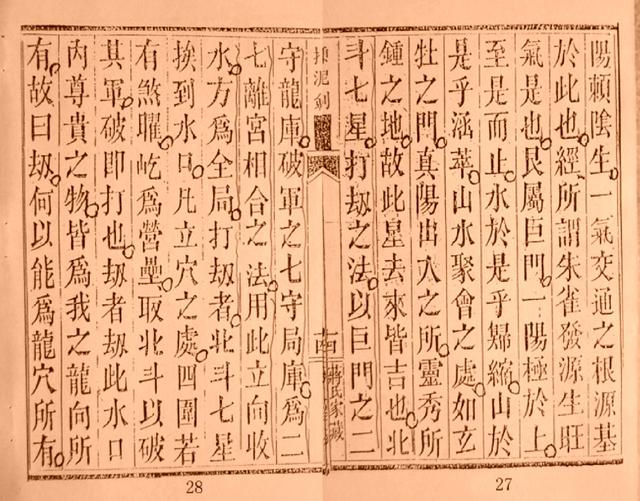 陽賴陰生一氣交通之根源基
於此也經所謂朱雀發源生旺
氣是也艮屬巨門一陽極於上
至是而止水於是乎歸縮山於
是乎涵萃山水聚會之處如玄
牡之門真陽出入之所靈秀所
鍾之地故此星去來皆吉也北
斗七星打刼之法以巨門之二
蔣氏家藏
守龍庫破軍之七守局庫為二
七離宮相合之法用此立向收
水方為全局打刼者北斗七星
挨到水口凡立穴之處四圍若
有煞曜屹為營壘取北斗以破
其軍破即打也刼者刼此水口
內尊貴之物皆為我之龍向所
有故曰刼何以能為龍穴所有
28
27